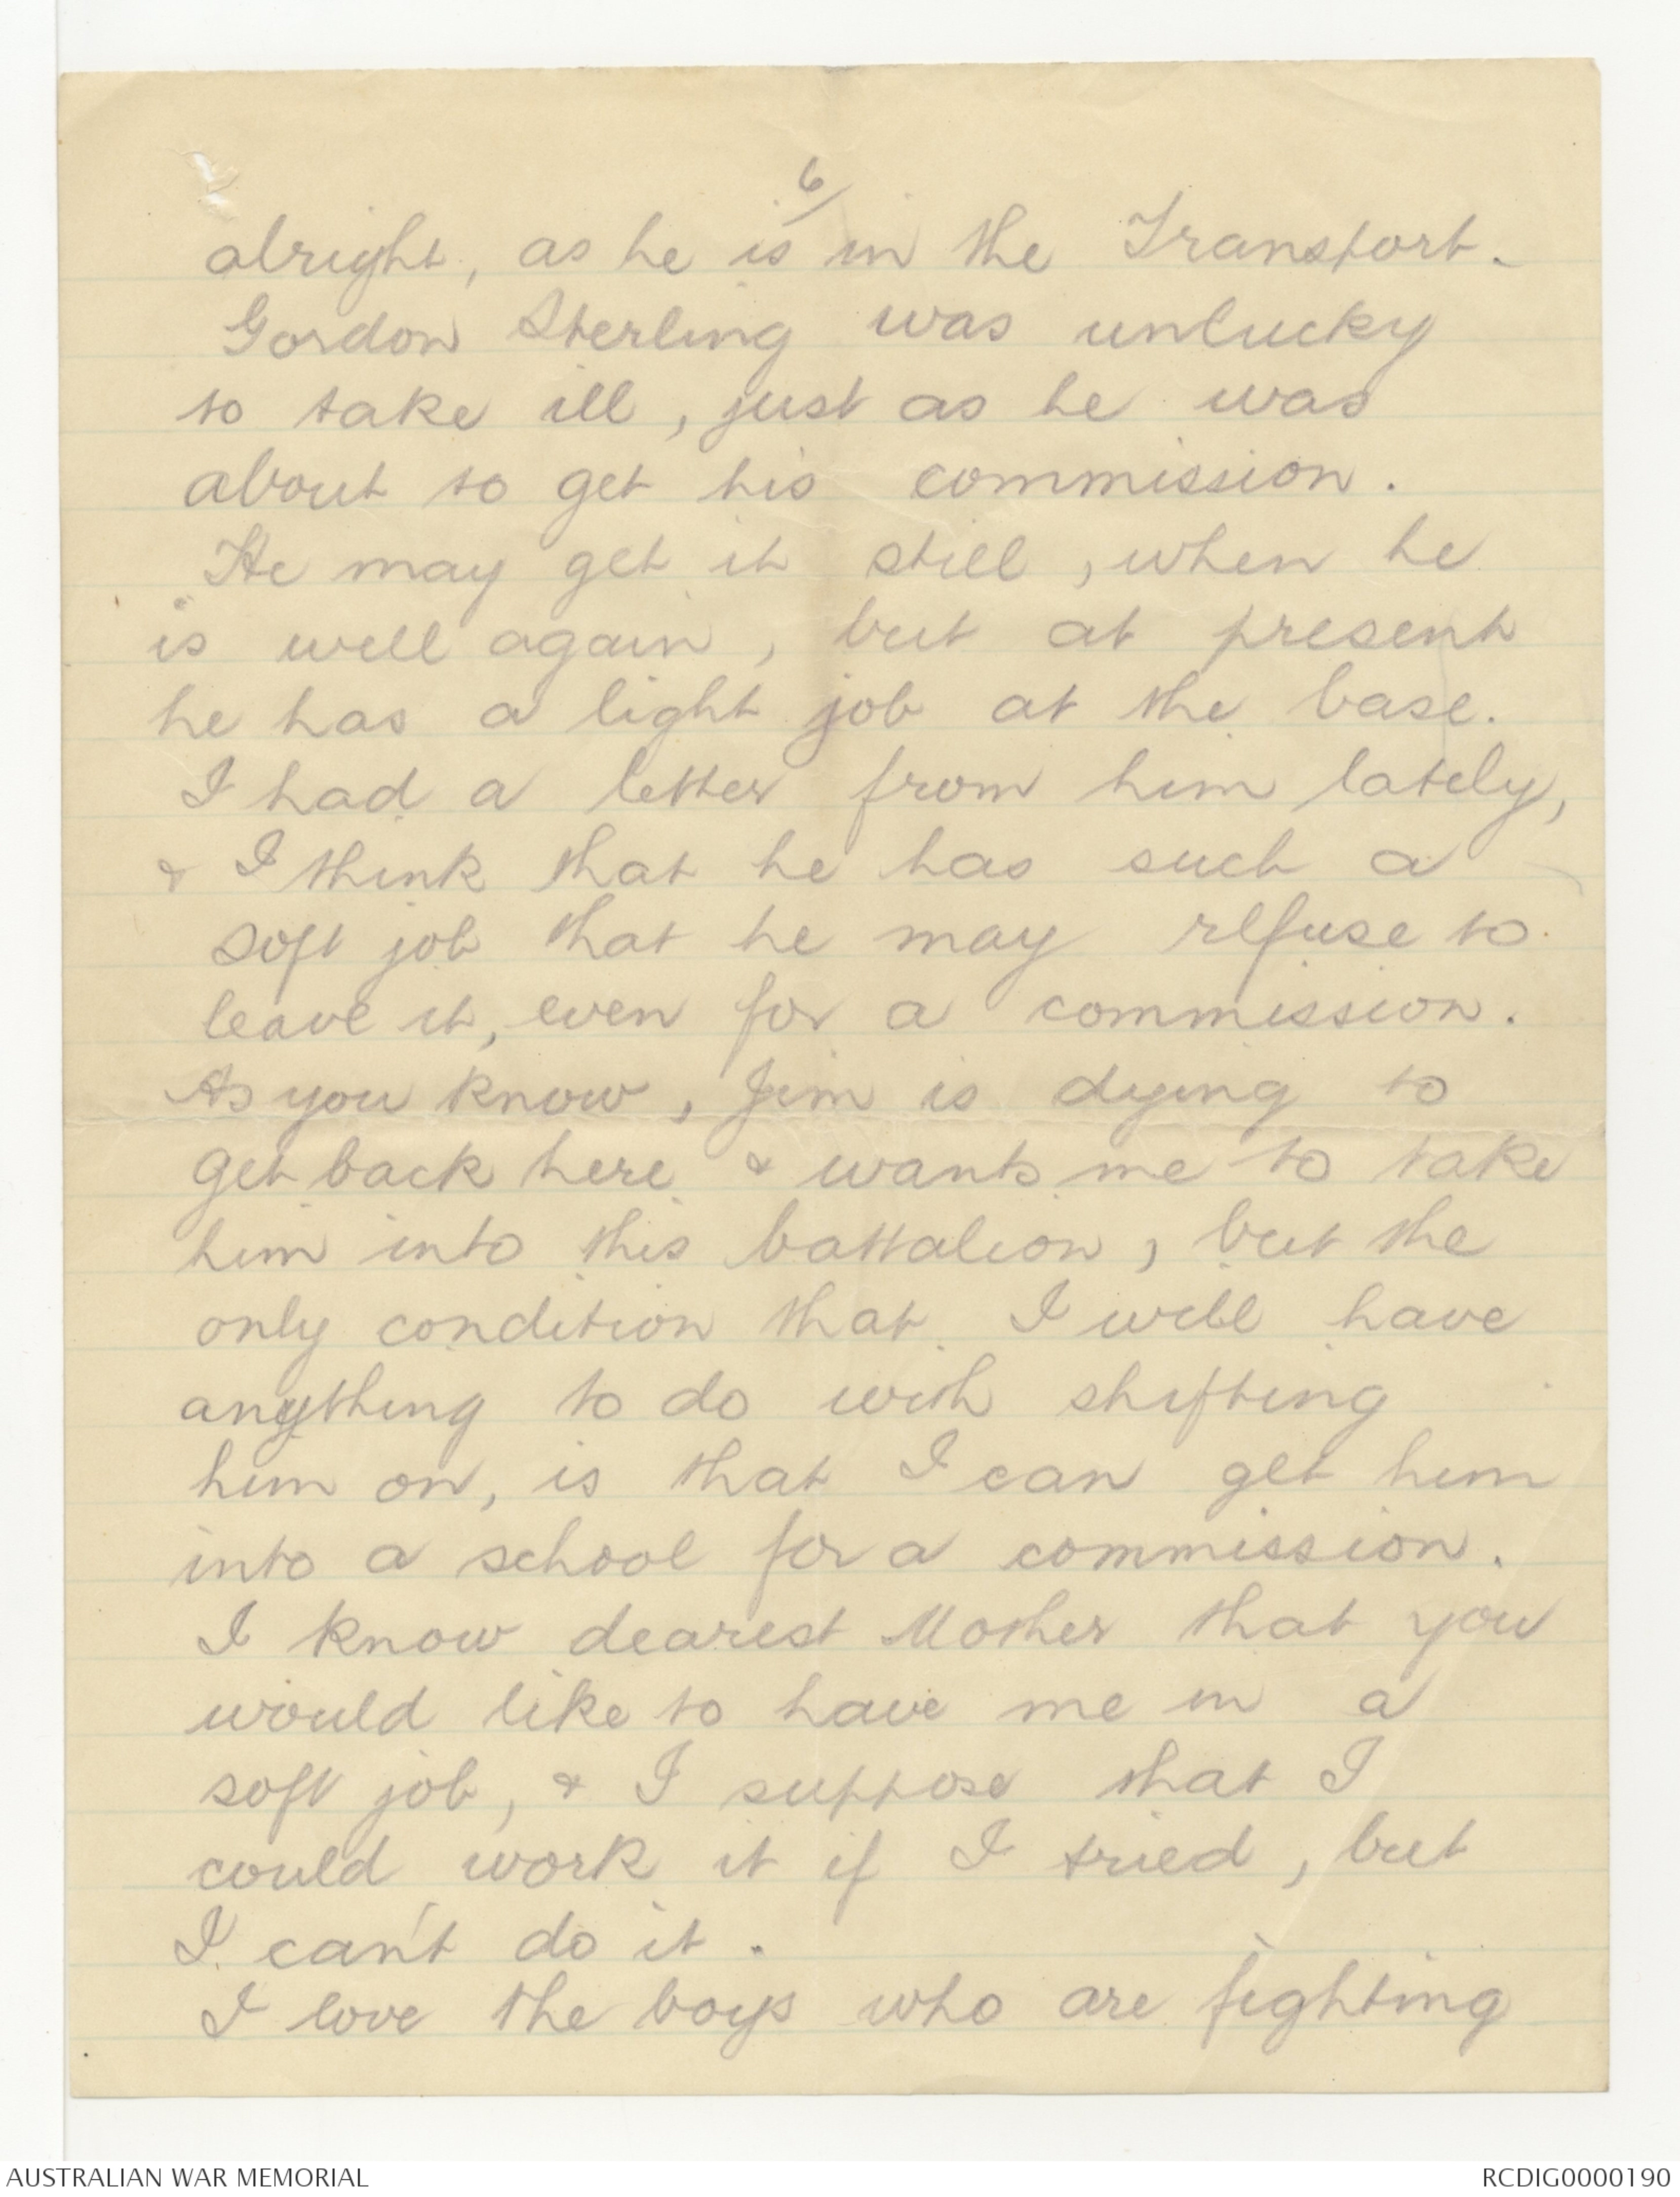 6/
alright, as he is in the Transport.
Gordon Sterling was unlucky
to take ill, just as he was
about to get his commission.
He may get it still, when he
is well again, but at present
he has a light job at the base.
I had a letter from him lately,
& I think that he has such a
soft job that he may refuse to
leave it, even for a commission.
As you know, Jim is dying to
get back here & wants me to take
him into this battalion, but the
only condition that I will have
anything to do with shifting
him on, is that I can get him
into a school for a commission.
I know dearest Mother that you
would like to have me in a
soft job, & I suppose that I
could work it if I tried, but
I can't do it.
I love the boys who are fighting
AUSTRALIAN WAR MEMORIAL
RCDIG0000190